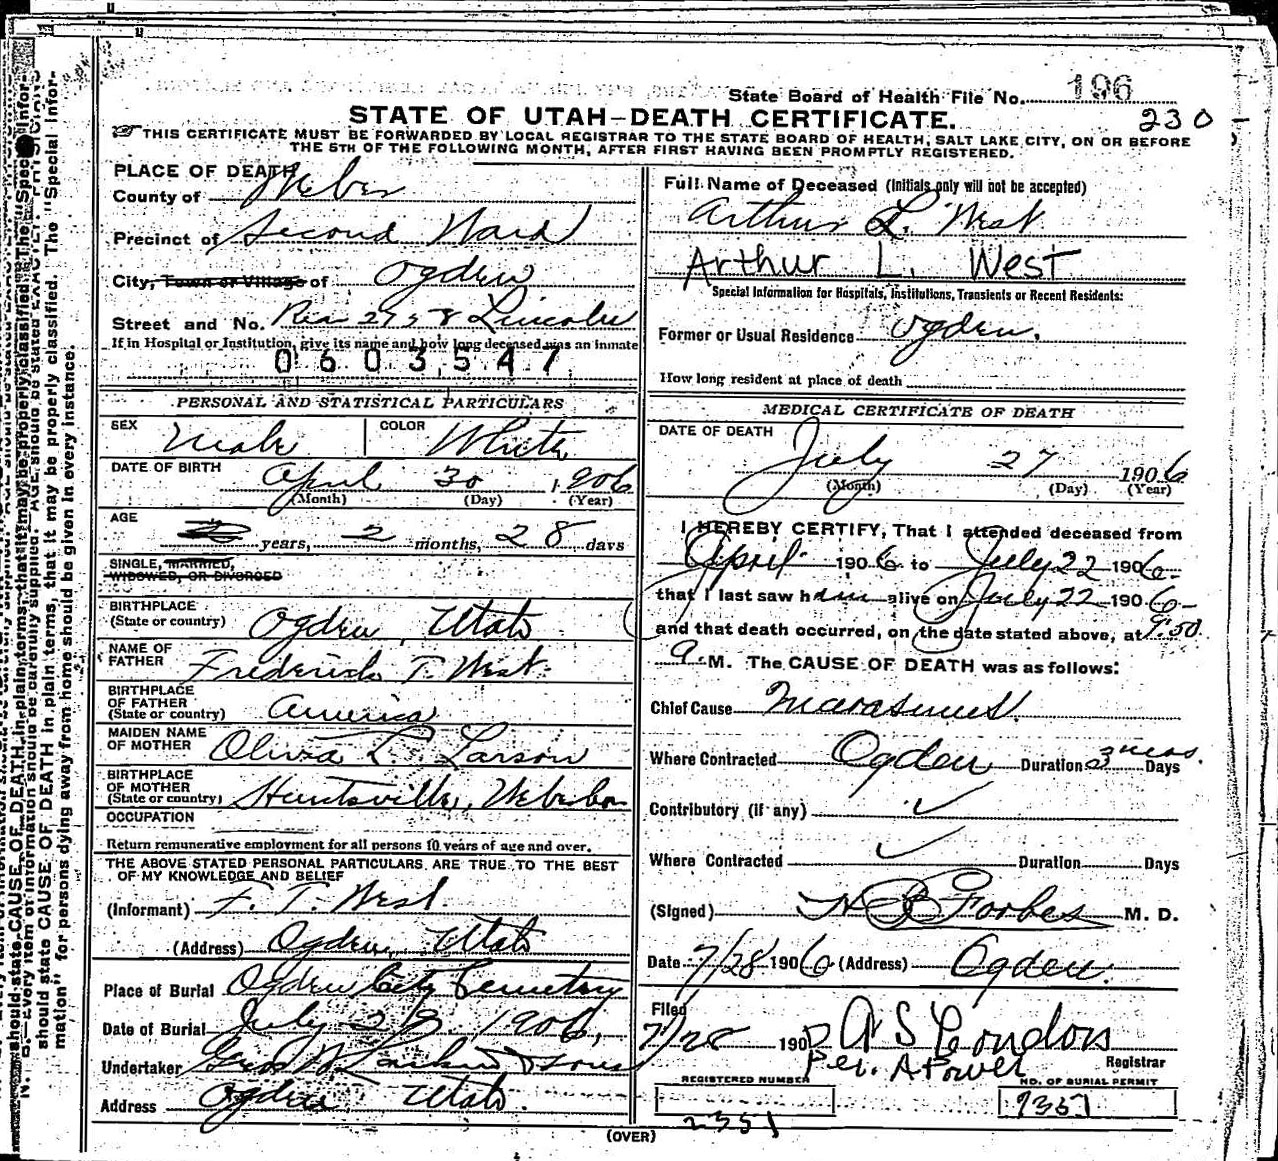 State Board of Health File No. 196
230
STATE OF UTAH—DEATH CERTIFICATE.
THIS CERTIFICATE MUST BE FORWARDED BY LOCAL REGISTRAR TO THE STATE BOARD OF HEALTH, SALT LAKE CITY, ON OR BEFORE
THE 5TH OF THE FOLLOWING MONTH, AFTER FIRST HAVING BEEN PROMPTLY REGISTERED.
PLACE OF DEATH
County of Weber
Precinct of Second Ward
City, Town or Village of Ogden
Street and No. Lincoln
If in Hospital or Institution, give its name and how long deceased was an inmate
0603547
PERSONAL AND STATISTICAL PARTICULARS
SEX Male COLOR White
DATE OF BIRTH April 30 1906
(Month) (Day) (Year)
AGE years, 2 months, 28 days
SINGLE, MARRIED,
WIDOWED, OR DIVORCED
BIRTHPLACE
(State or country) Ogden, Utah
NAME OF
FATHER Frederick T. West.
BIRTHPLACE
OF FATHER
(State or country) America
MAIDEN NAME
OF MOTHER Olivia L. Larson
BIRTHPLACE
OF MOTHER
(State or country) Huntsville, Weber
OCCUPATION
Return remunerative employment for all persons 10 years of age and over.
THE ABOVE STATED PERSONAL PARTICULARS ARE TRUE TO THE BEST
OF MY KNOWLEDGE AND BELIEF
(Informant) F. T. West.
(Address) Ogden, Utah
Place of Burial Ogden City Cemetery
Date of Burial July 28. 1906,
Undertaker & Sons
Address Ogden Utah.
Full Name of Deceased (Initials only will not be accepted)
Arthur L. West
Arthur L. West
Special Information for Hospitals, Institutions, Transients or Recent Residents:
Former or Usual Residence Ogden.
How long resident at place of death
MEDICAL CERTIFICATE OF DEATH
DATE OF DEATH
July 27 1906
(Month) (Day) (Year)
I HEREBY CERTIFY, That I attended deceased from
April 1906 to July 22 1906
that I last saw him alive on July 22 1906
and that death occurred, on the date stated above, at 9:50
a M. The CAUSE OF DEATH was as follows:
Chief Cause Marasmus.
Where Contracted Ogden Duration 3 mos. Days
Contributory (if any) ✓
Where Contracted ✓ Duration Days
(Signed) Forbes M. D.
Date 7/28 1906 (Address) Ogden.
Filed
7/28 190 A S Condon
Per. A Power Registrar
REGISTERED NUMBER NO. OF BURIAL PERMIT
2351
(OVER)
should state CAUSE OF DEATH in plain terms, that it may be properly classified. The "Special Infor-
mation" for persons dying away from home should be given in every instance.